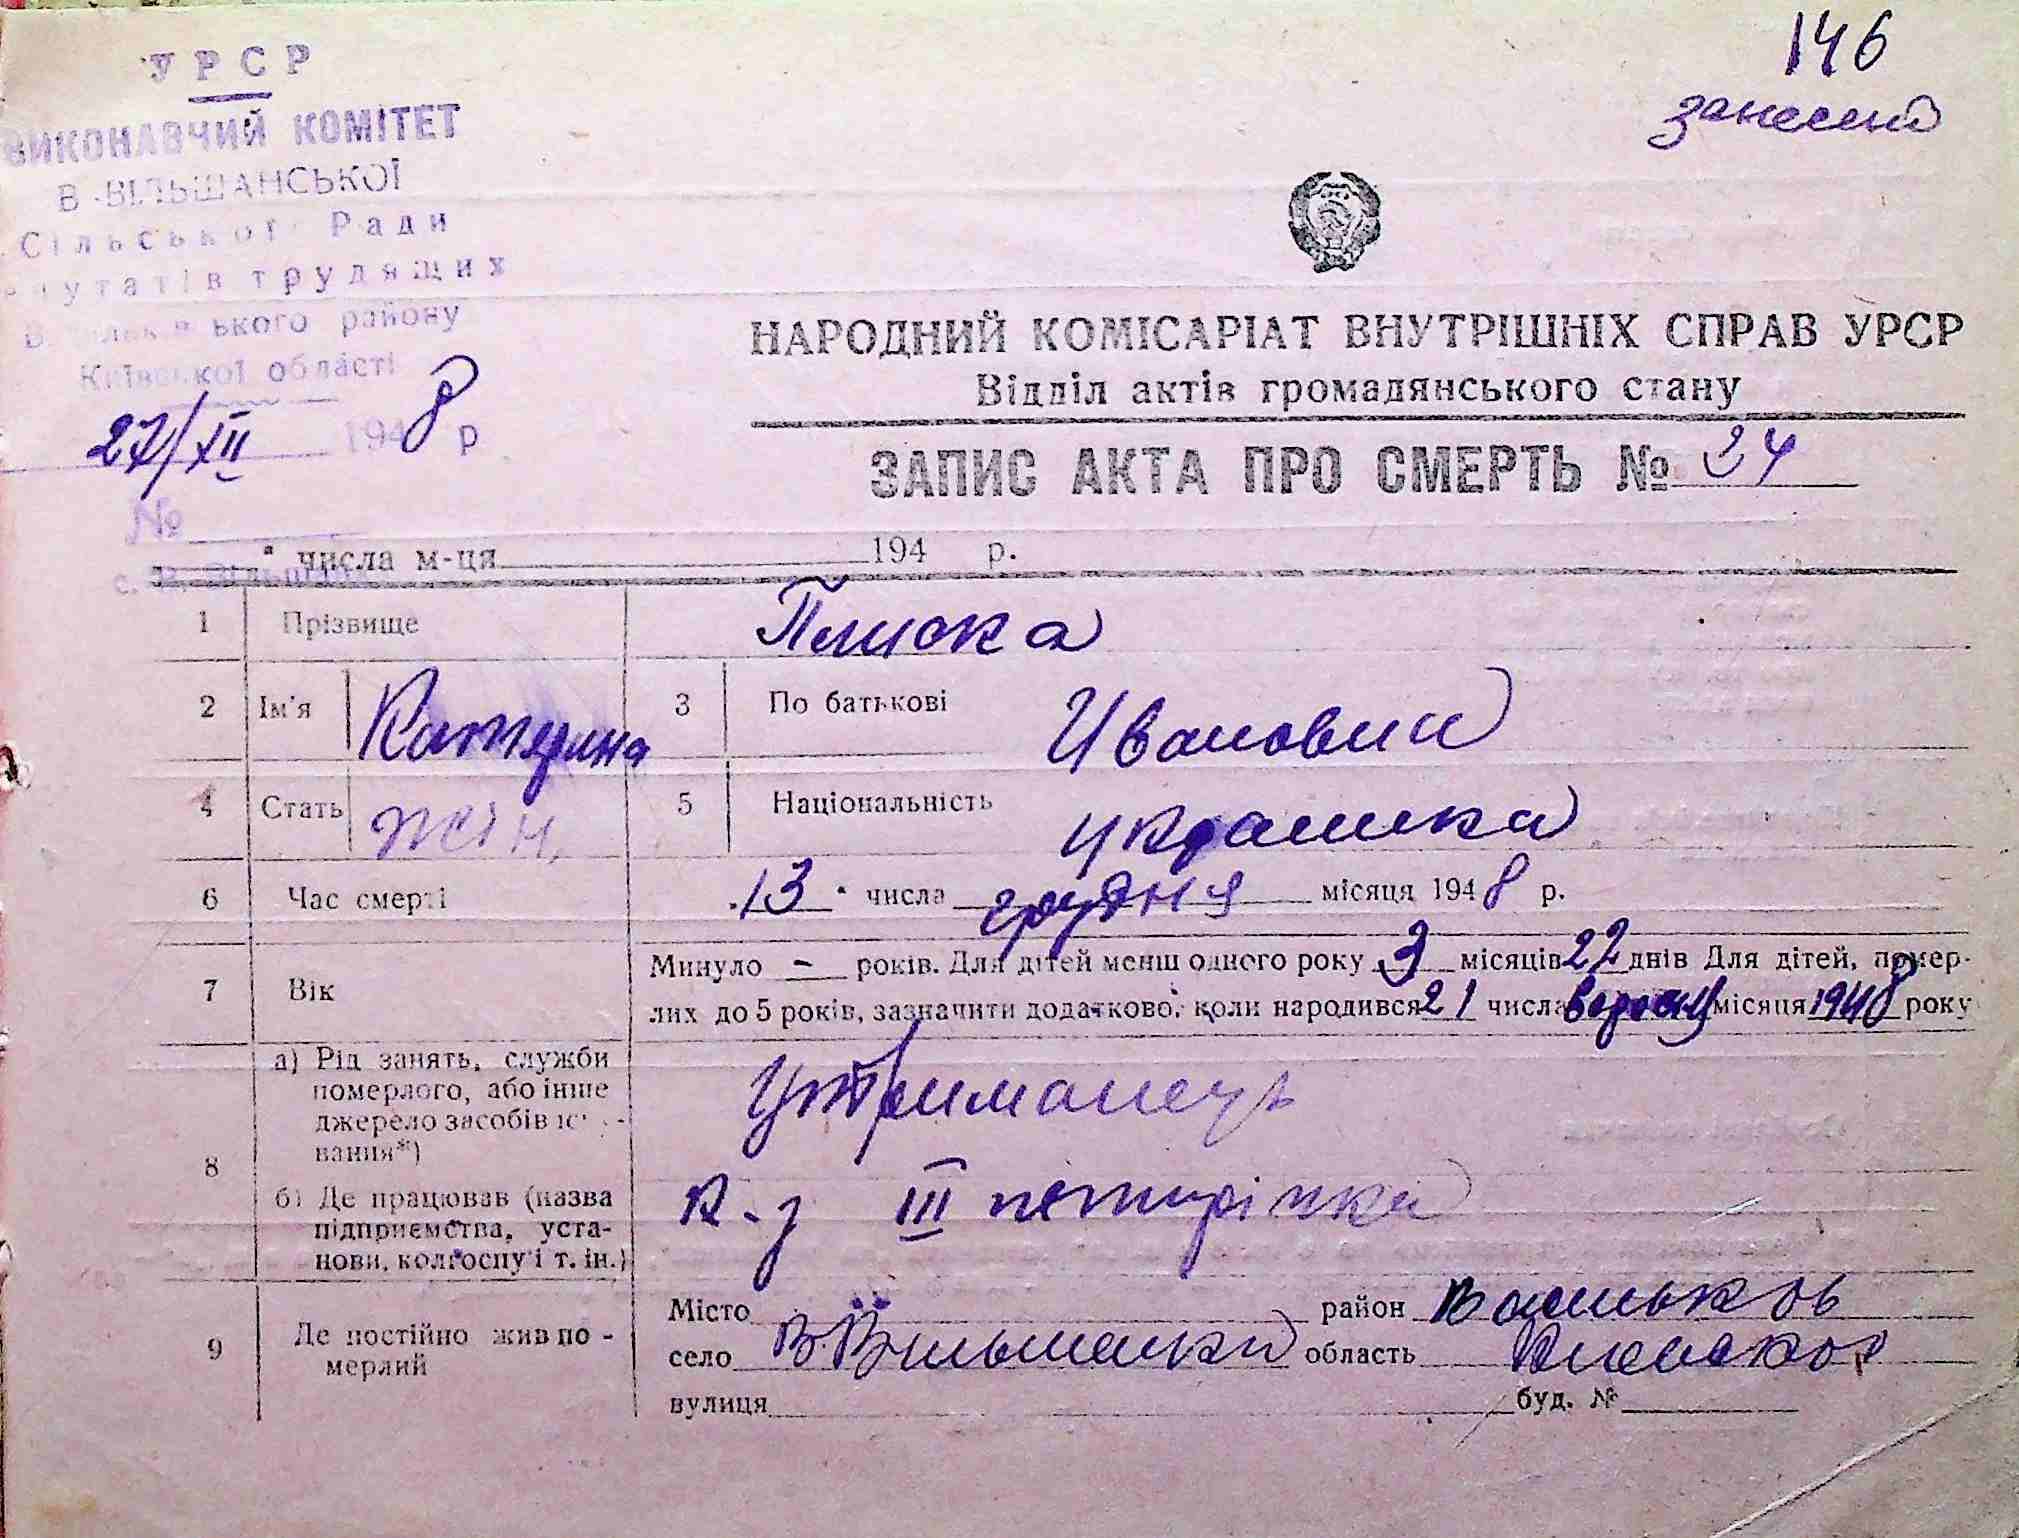 146
занесено
УРСР
ВИКОНАВЧИЙ КОМІТЕТ
В-ВІЛЬШАНСЬКОЇ
Сільської Ради
путатів трудящих
ького району
Київської області
27/XII 1948 р
№
НАРОДНИЙ КОМІСАРІАТ ВНУТРІШНІХ СПРАВ УРСР
Відділ актів громадянського стану
ЗАПИС АКТА ПРО СМЕРТЬ № 24
" числа м-ця 194 р.
1 Прізвище Плиска
2 Ім'я Катерина 3 По батькові Ивановни
4 Стать жін. 5 Національність украинка
6 Час смерті 13 " числа грудня місяця 1948 р.
7 Вік Минуло - років. Для дітей менш одного року 3 місяців 22 днів Для дітей, помер-
лих до 5 років, зазначити додатково, коли народився 21 числа місяця 1948 року
8 а) Рід занять, служби
померлого, або інше
джерело засобів іс -
вання*) Утриманець
б) Де працював (назва
підприємства, уста-
нови, колгоспу і т. ін.) К-з III пятирічка
9 Де постійно жив по -
мерлий
Місто район Васильков
село В. Вільшанка область Киевская
вулиця буд. №